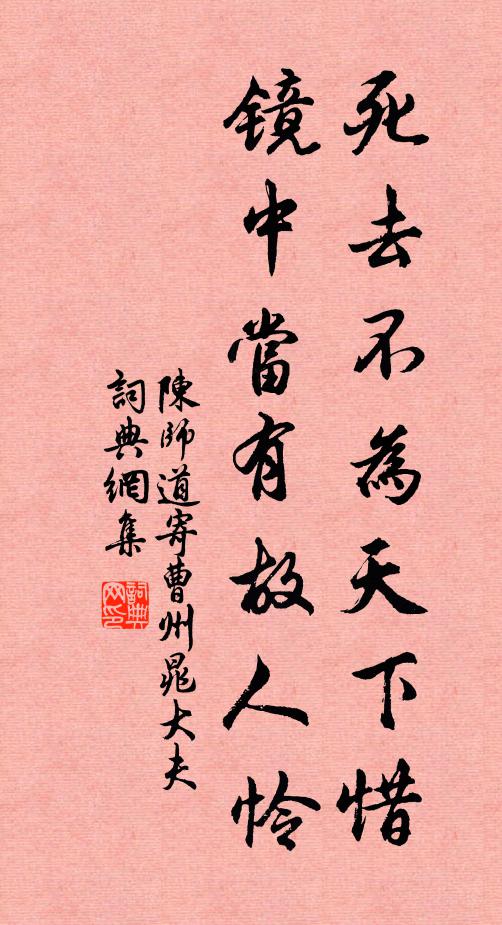 死去不為天下惜
镜中當有故人怜
陳師道寄曹州晁大夫
詞典網集
詞典
网印